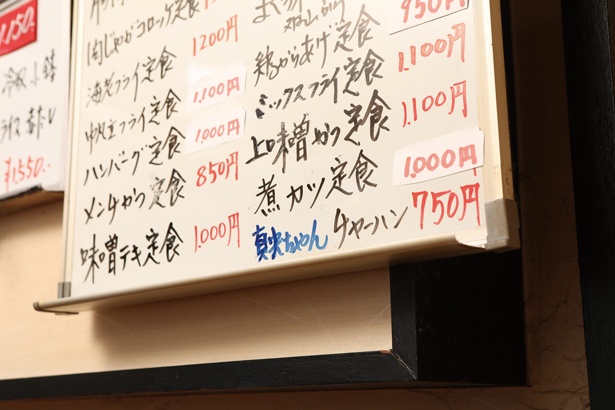 1,150.
ライス
¥1,550.
肉じゃがコロッケ定食
海老フライ定食 1200円
帆立フライ定食 1,100円
ハンバーグ定食 1,000円
メンチかつ定食 850円
味噌テキ定食 1,000円
950円
鶏からあげ定食
ミックスフライ定食 1,100円
上味噌かつ定食 1,100円
煮カツ定食 1,000円
真央ちゃんチャーハン 750円